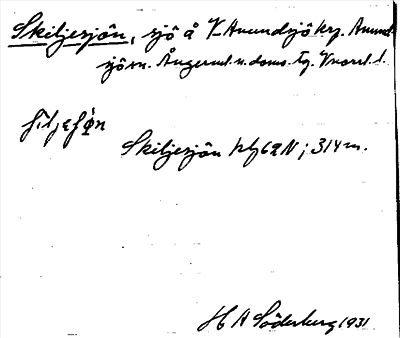 Skiljesjön, sjö å V Anundsjö krp. Anund-
sjö sn. Ångerml. n. doms. tg. Vnorrl. l.
Skiljesjön kbl 62 N; 314 m.
H A Söderberg 1931